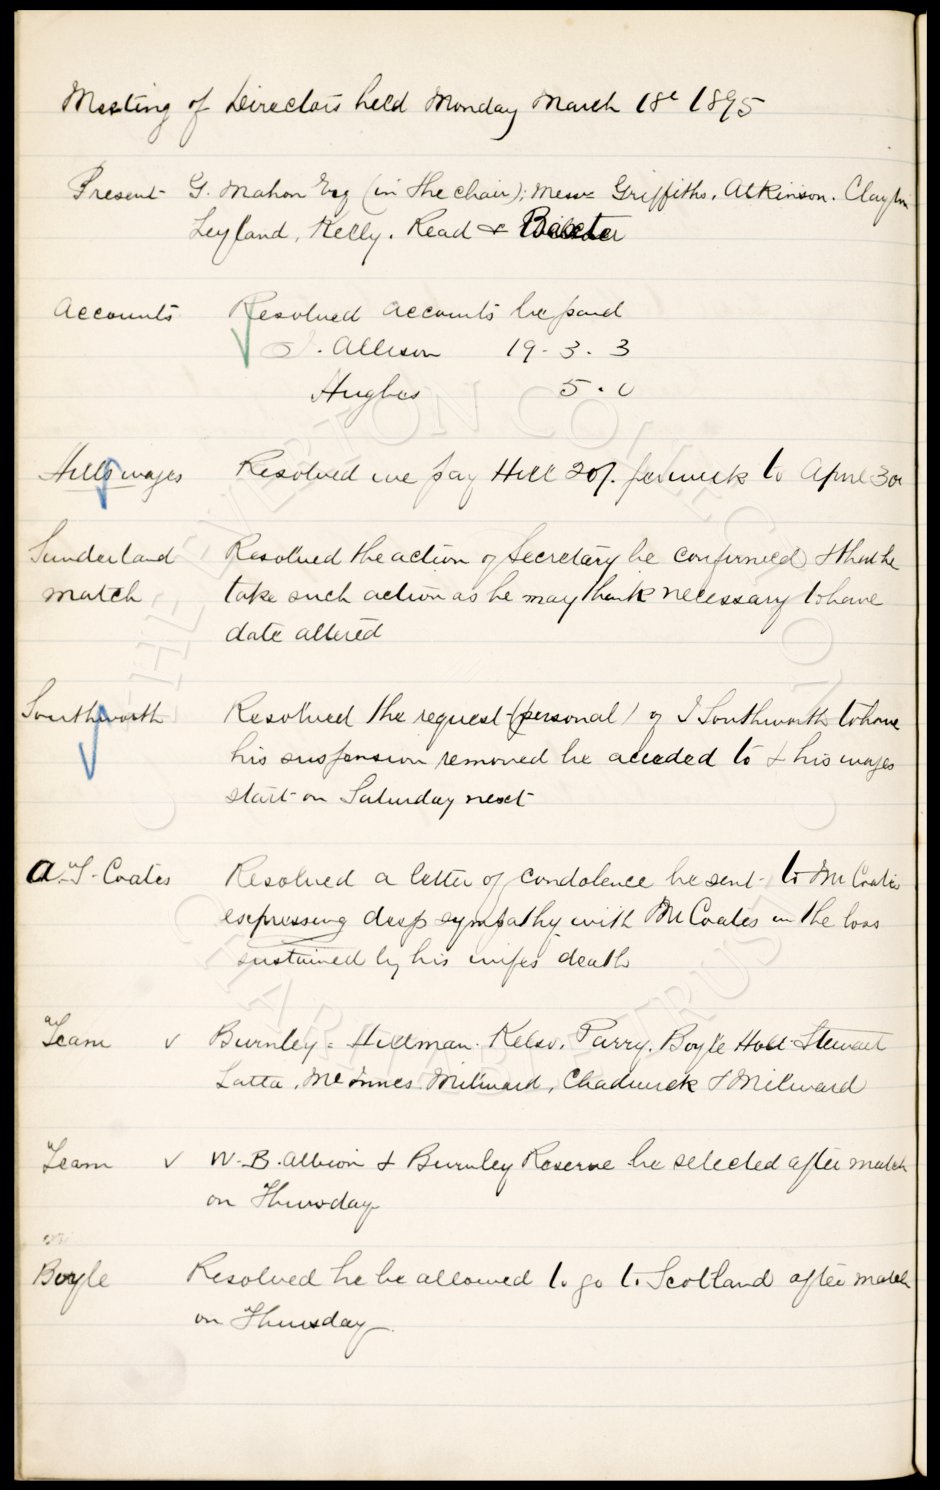 Meeting of Directors held Monday March 18th 1895
Present G. Mahon Esq (in the chair); Messrs Griffiths, Atkinson. Clayton
Leyland, Kelly. Read & Baxter
Accounts Resolved accounts be paid
J. Allison 19 - 3 - 3
Hughes 5 - 0
Hills wages Resolved we pay Hill 20/- per week to April 30
Sunderland Resolved the action of Secretary be confirmed & that he
match take such action as he may think necessary to have
date altered
Southworth Resolved the request (personal) of J Southworth to have
his suspension removed be acceded to & his wages
start on Saturday next
A. T. Coates Resolved a letter of condolence be sent to Mr Coates
expressing deep sympathy with Mr Coates in the loss
sustained by his wife's death
Team v Burnley - Hillman. Kelso. Parry. Boyle Holt Stewart
Latta, McInnes Milward, Chadwick & Milward
Team v W. B. Albion & Burnley Reserve be selected after match
on Thursday
Boyle Resolved he be allowed to go to Scotland after match
on Thursday
© THE EVERTON COLLECTION
CHARITABLE TRUST